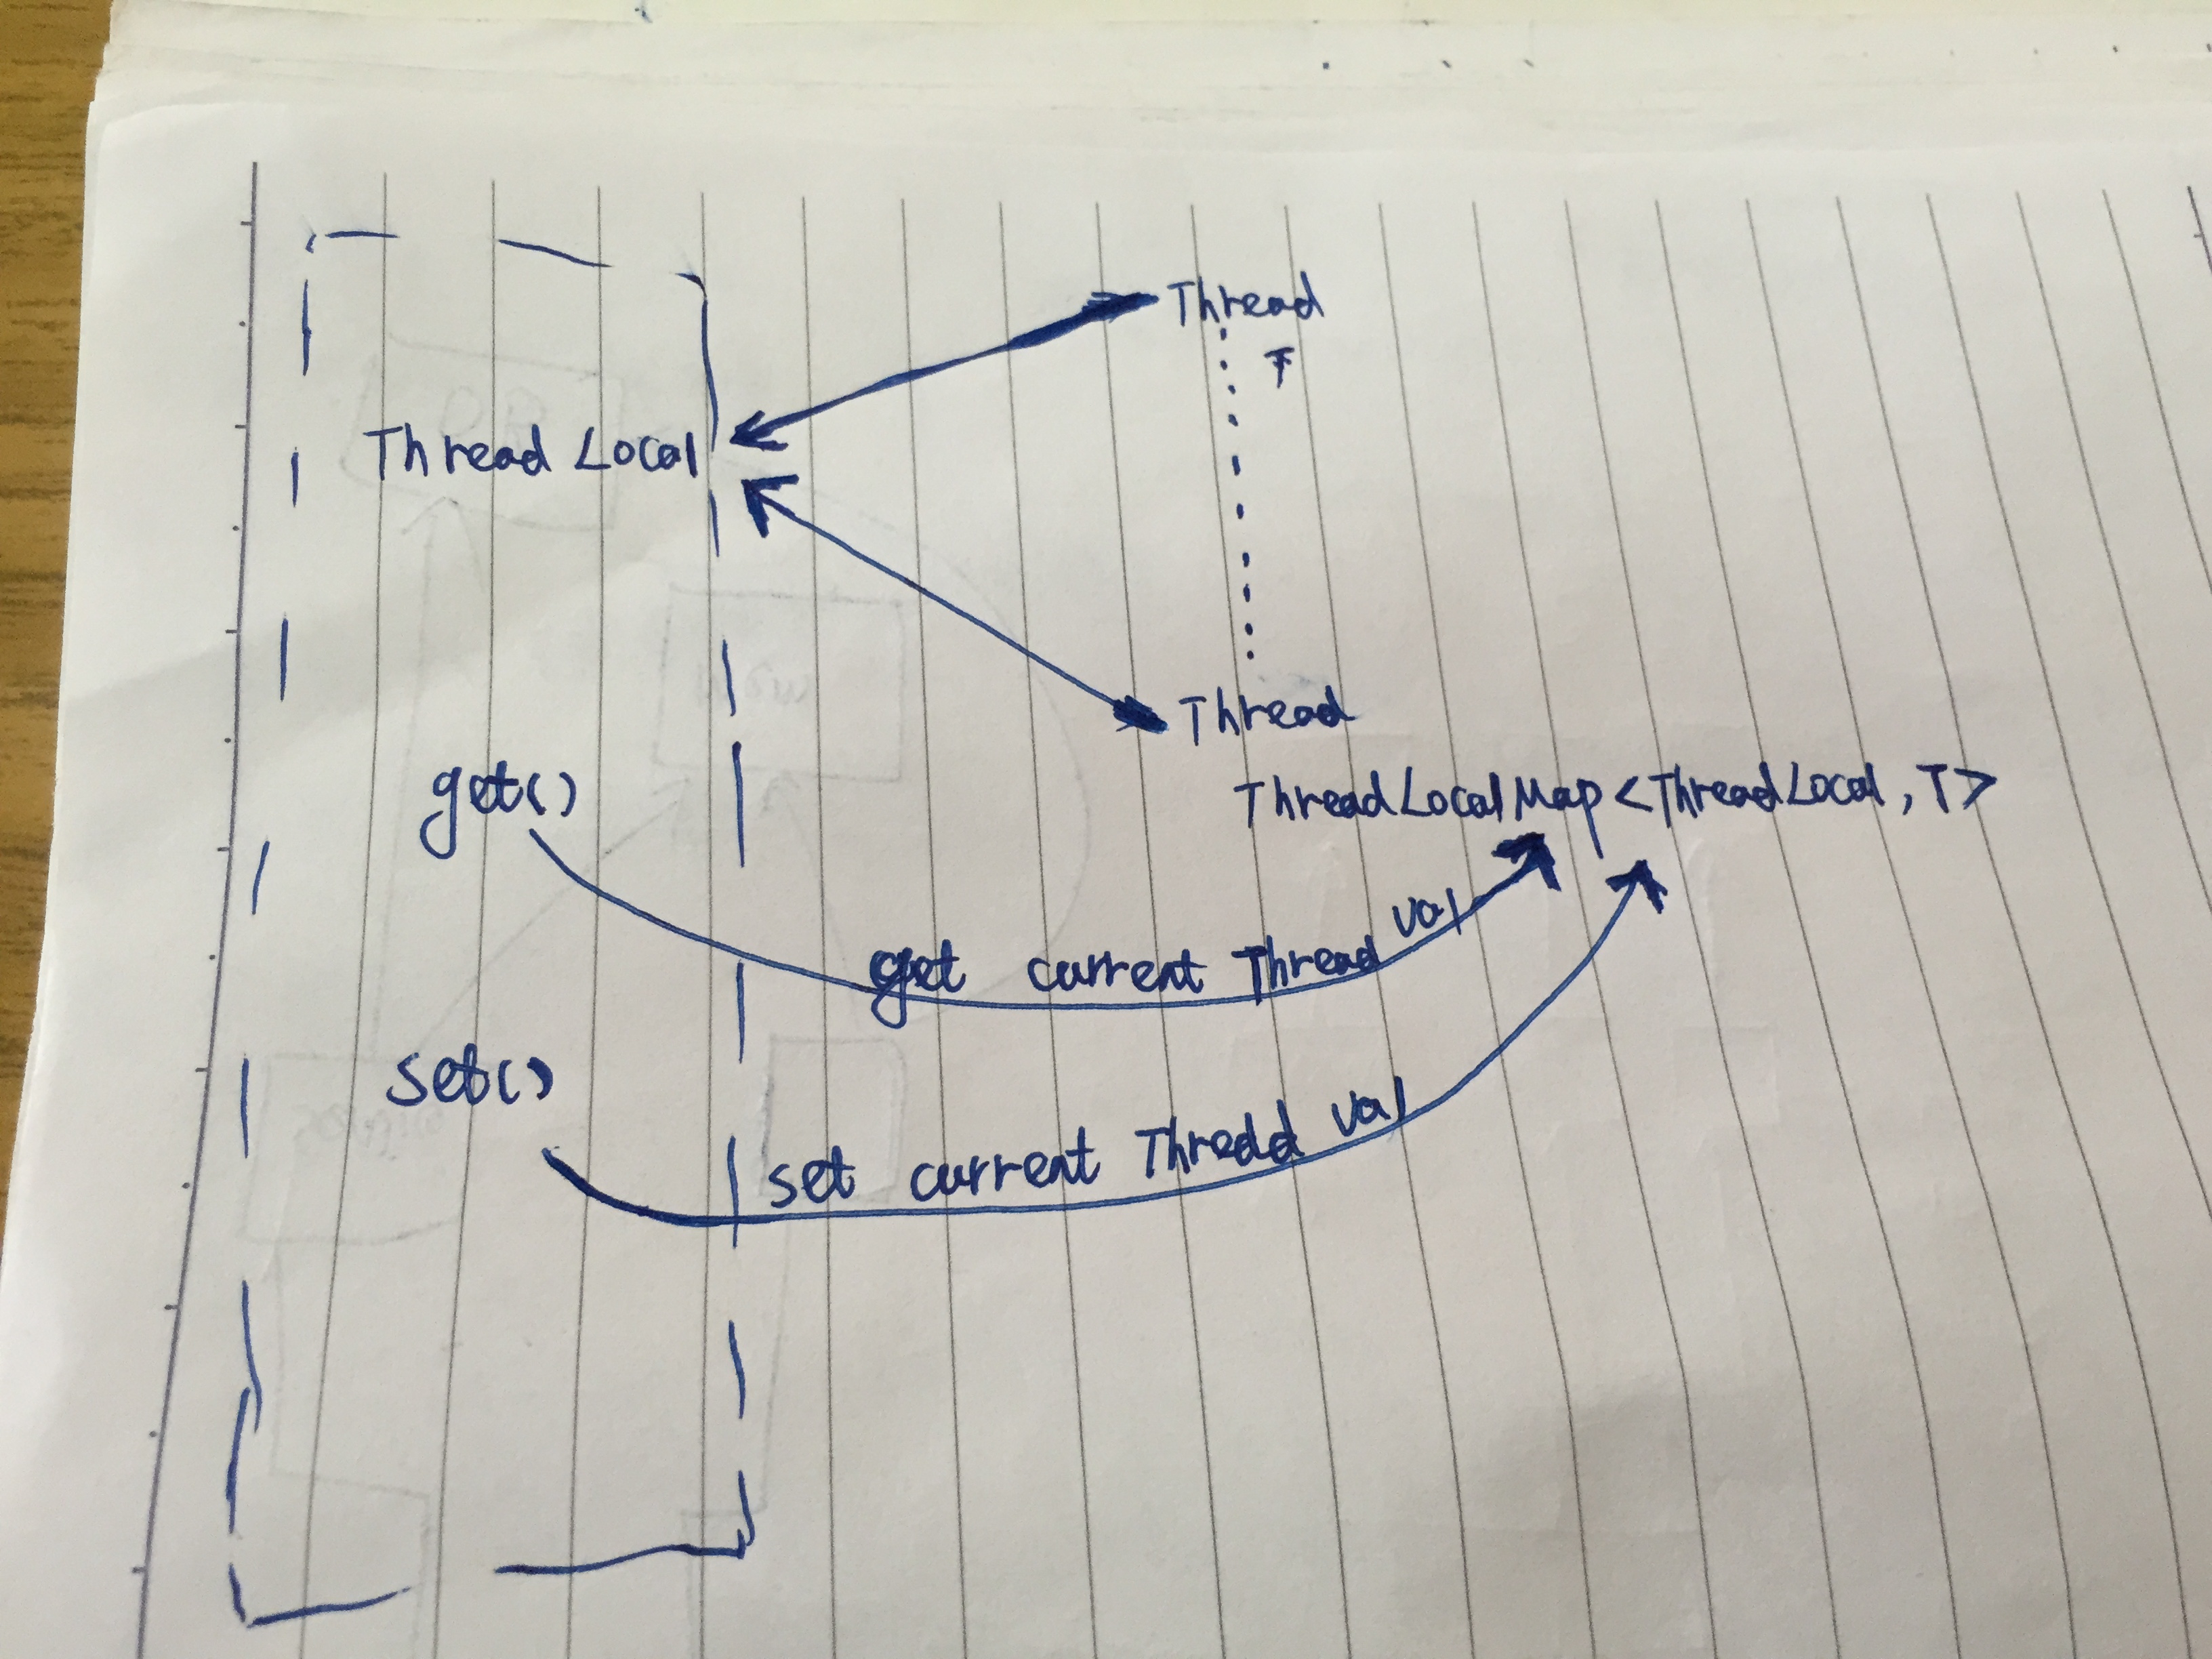 Thread
Thread Local
Thread
get()
ThreadLocalMap<ThreadLocal, T>
get current Thread val
set()
set current Thredd val